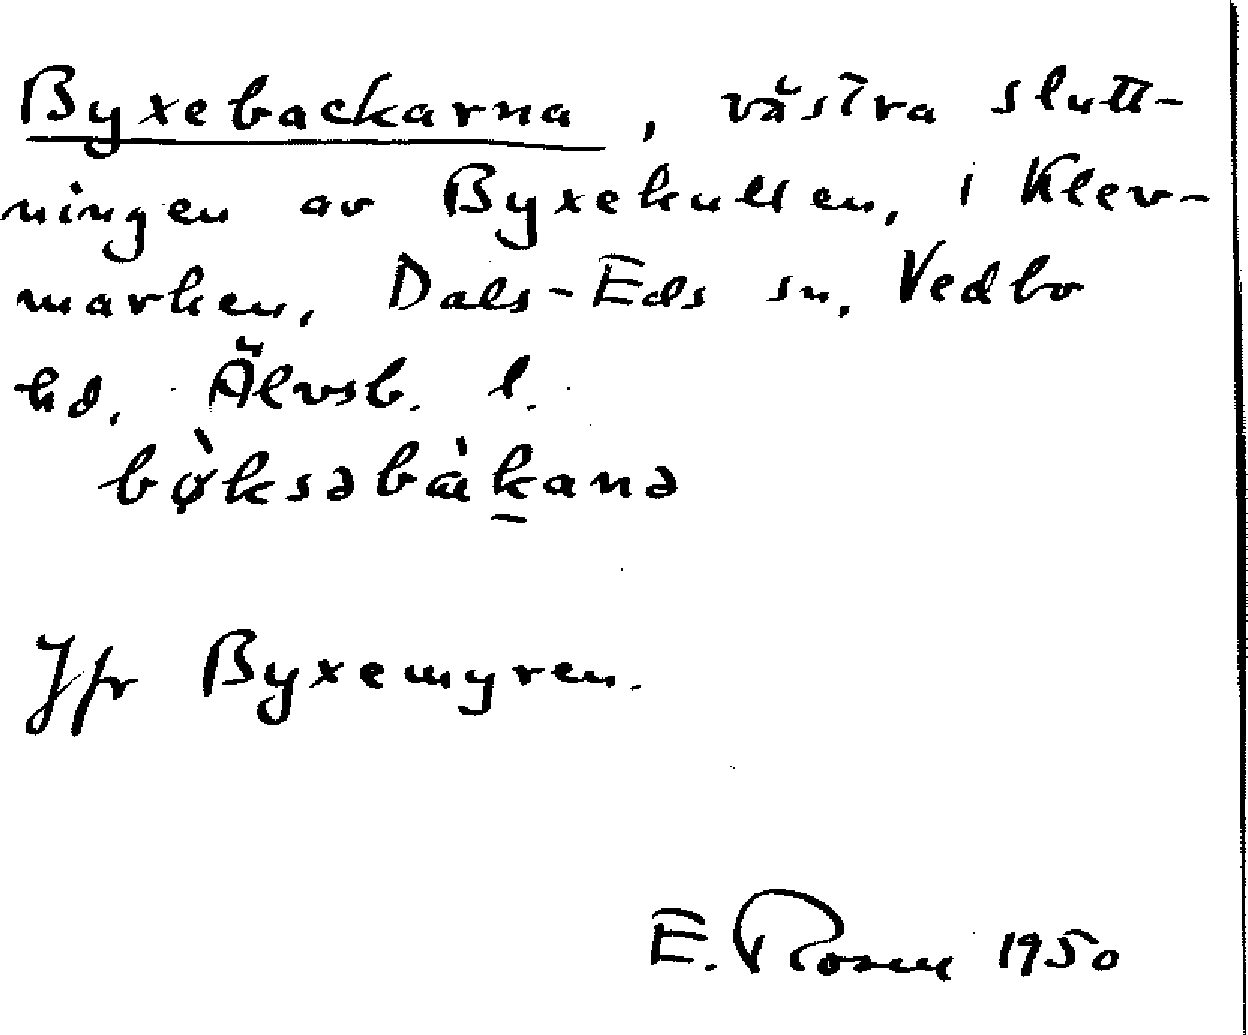 Byxebackarna, västra slutt-
ningen av Byxekullen, i Klev-
marken, Dals-Eds sn, Vedbo
hd, Älvsb. l.
bø̀ksəbàkanə
Jfr Byxemyren.
E. Rosell 1950